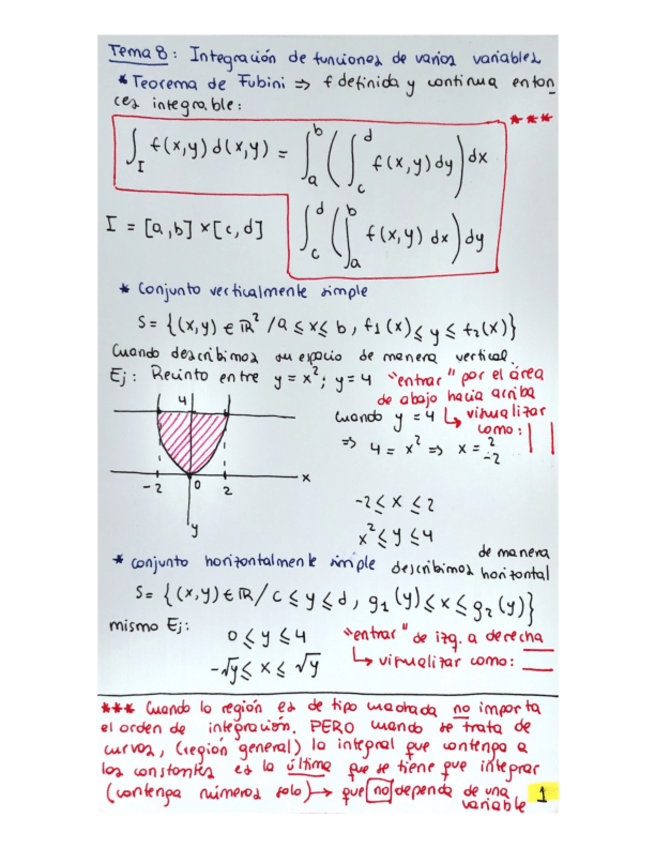 Tema 8: Integración de funciones de varios variables
* Teorema de Fubini => f definida y continua enton
ces integrable:
***
∫_I f(x,y) d(x,y) = ∫_a^b (∫_c^d f(x,y) dy) dx
I = [a,b] x [c,d]
∫_c^d (∫_a^b f(x,y) dx) dy
* Conjunto verticalmente simple
S = {(x,y) ∈ ℝ² / a ≤ x ≤ b, f1(x) ≤ y ≤ f2(x)}
Cuando describimos su espacio de manera vertical.
Ej: Recinto entre y = x²; y = 4
"entrar" por el área
de abajo hacia arriba
↳ visualizar
como: | |
cuando y = 4
=> 4 = x² => x = 2 -2
4
-2 0 2 x
y
-2 ≤ x ≤ 2
x² ≤ y ≤ 4
* conjunto horizontalmente simple
de manera
describimos horizontal
S = {(x,y) ∈ ℝ / c ≤ y ≤ d, g1(y) ≤ x ≤ g2(y)}
mismo Ej:
0 ≤ y ≤ 4
-√y ≤ x ≤ √y
"entrar" de izq. a derecha
↳ visualizar como:
*** Cuando la región es de tipo cuadrada no importa
el orden de integración. PERO cuando se trata de
curvas, (región general) la integral que contenga a
las constantes es la última que se tiene que integrar
(contenga números solo) → que no depende de una
variable
1